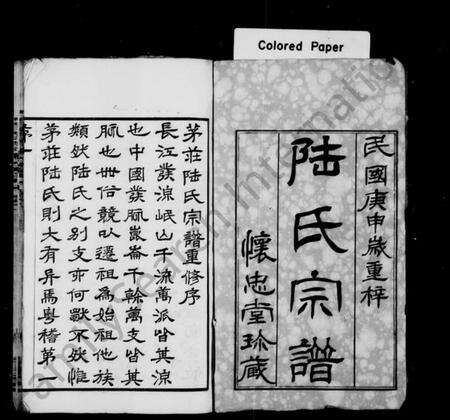 Colored Paper
民國庚申歲重梓
陸氏宗譜
懷忠堂珍藏
茅莊陸氏宗譜重修序
長江發源岷山千流萬派皆其源
也中國發脈崑崙千榦萬支皆其
脈也世俗競以遷祖為始祖他族
類然陸氏之別支亦何獨不然惟
茅莊陸氏則大有異焉粵稽第一